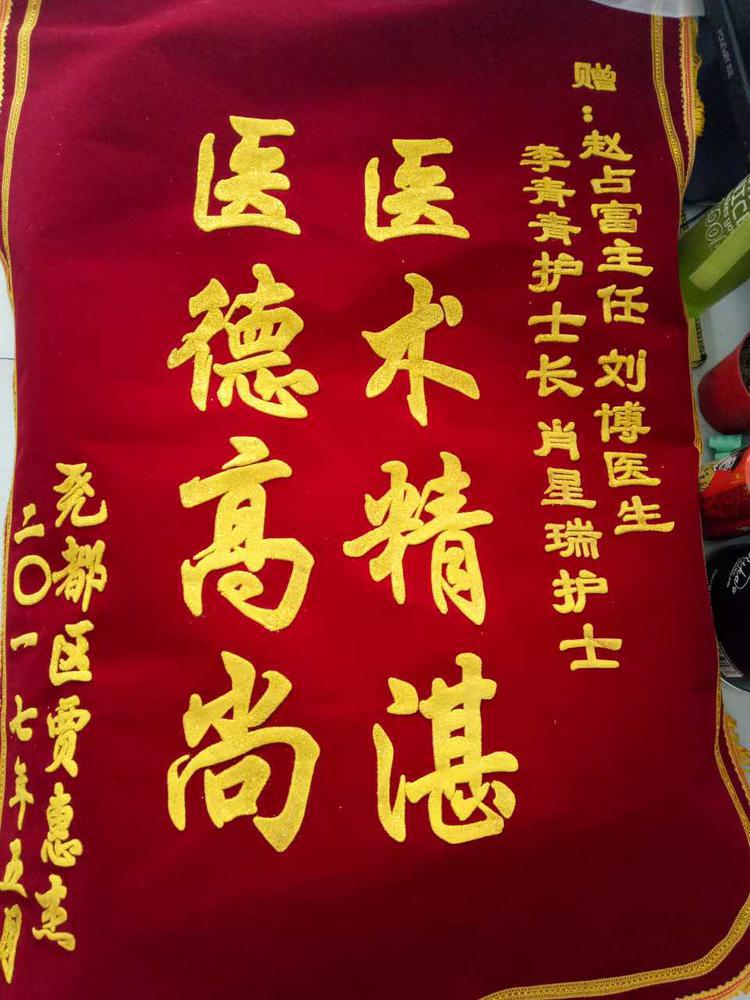 赠：赵占富主任 刘博医生
李青青护士长 肖星瑞护士
医术精湛
医德高尚
尧都区贾惠杰
二〇一七年五月